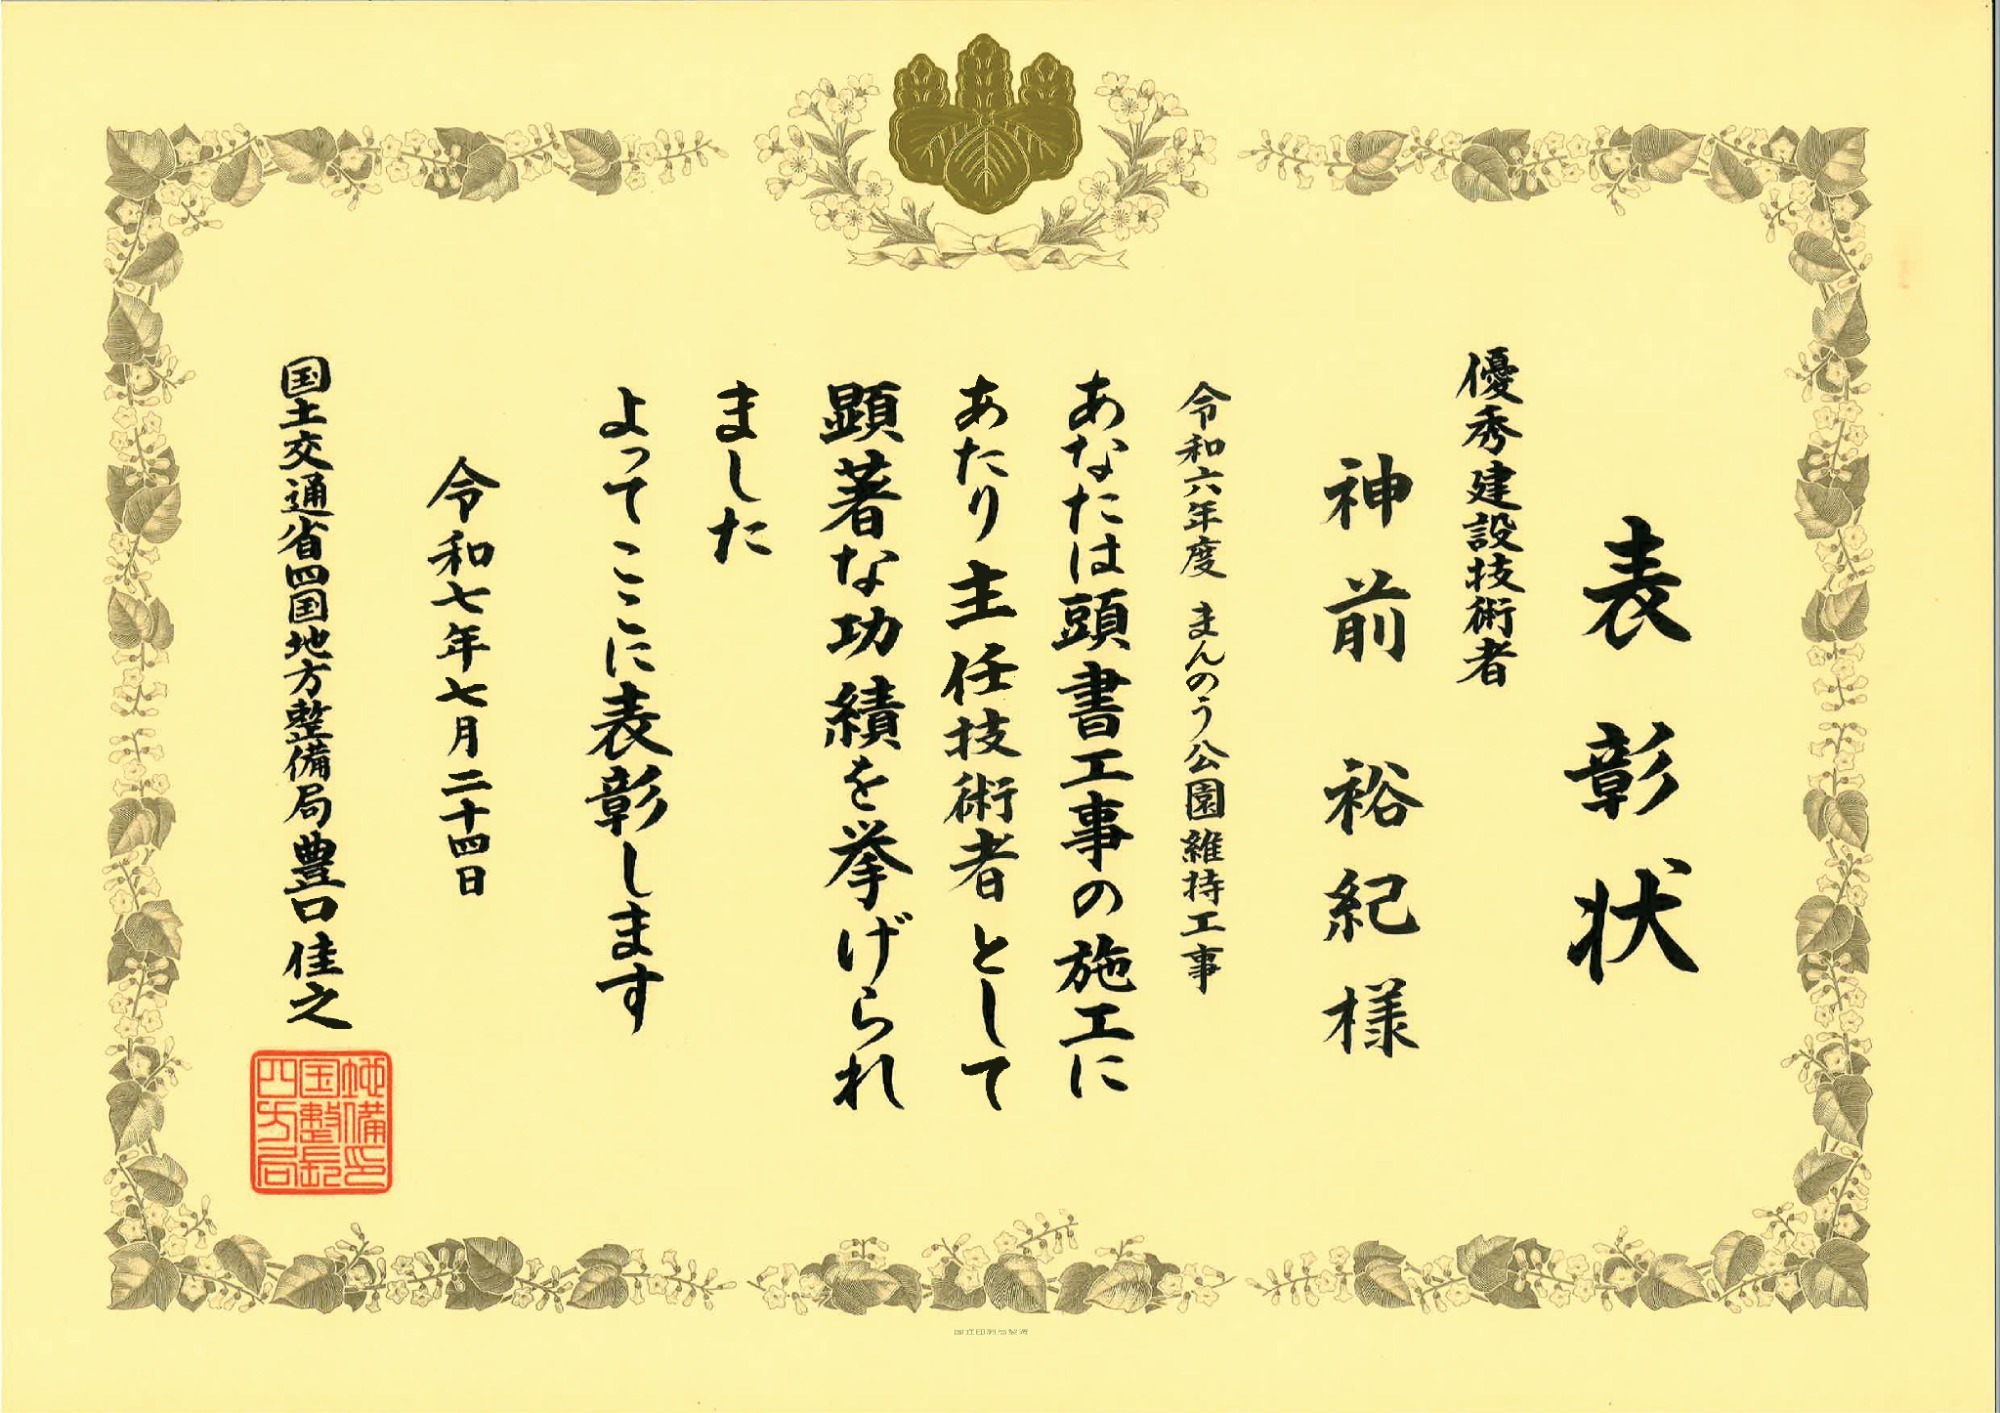 表彰状
優秀建設技術者
神前裕紀様
令和六年度 まんのう公園維持工事
あなたは頭書工事の施工に
あたり主任技術者として
顕著な功績を挙げられ
ました
よってここに表彰します
令和七年七月二十四日
国土交通省四国地方整備局長 豊口佳之